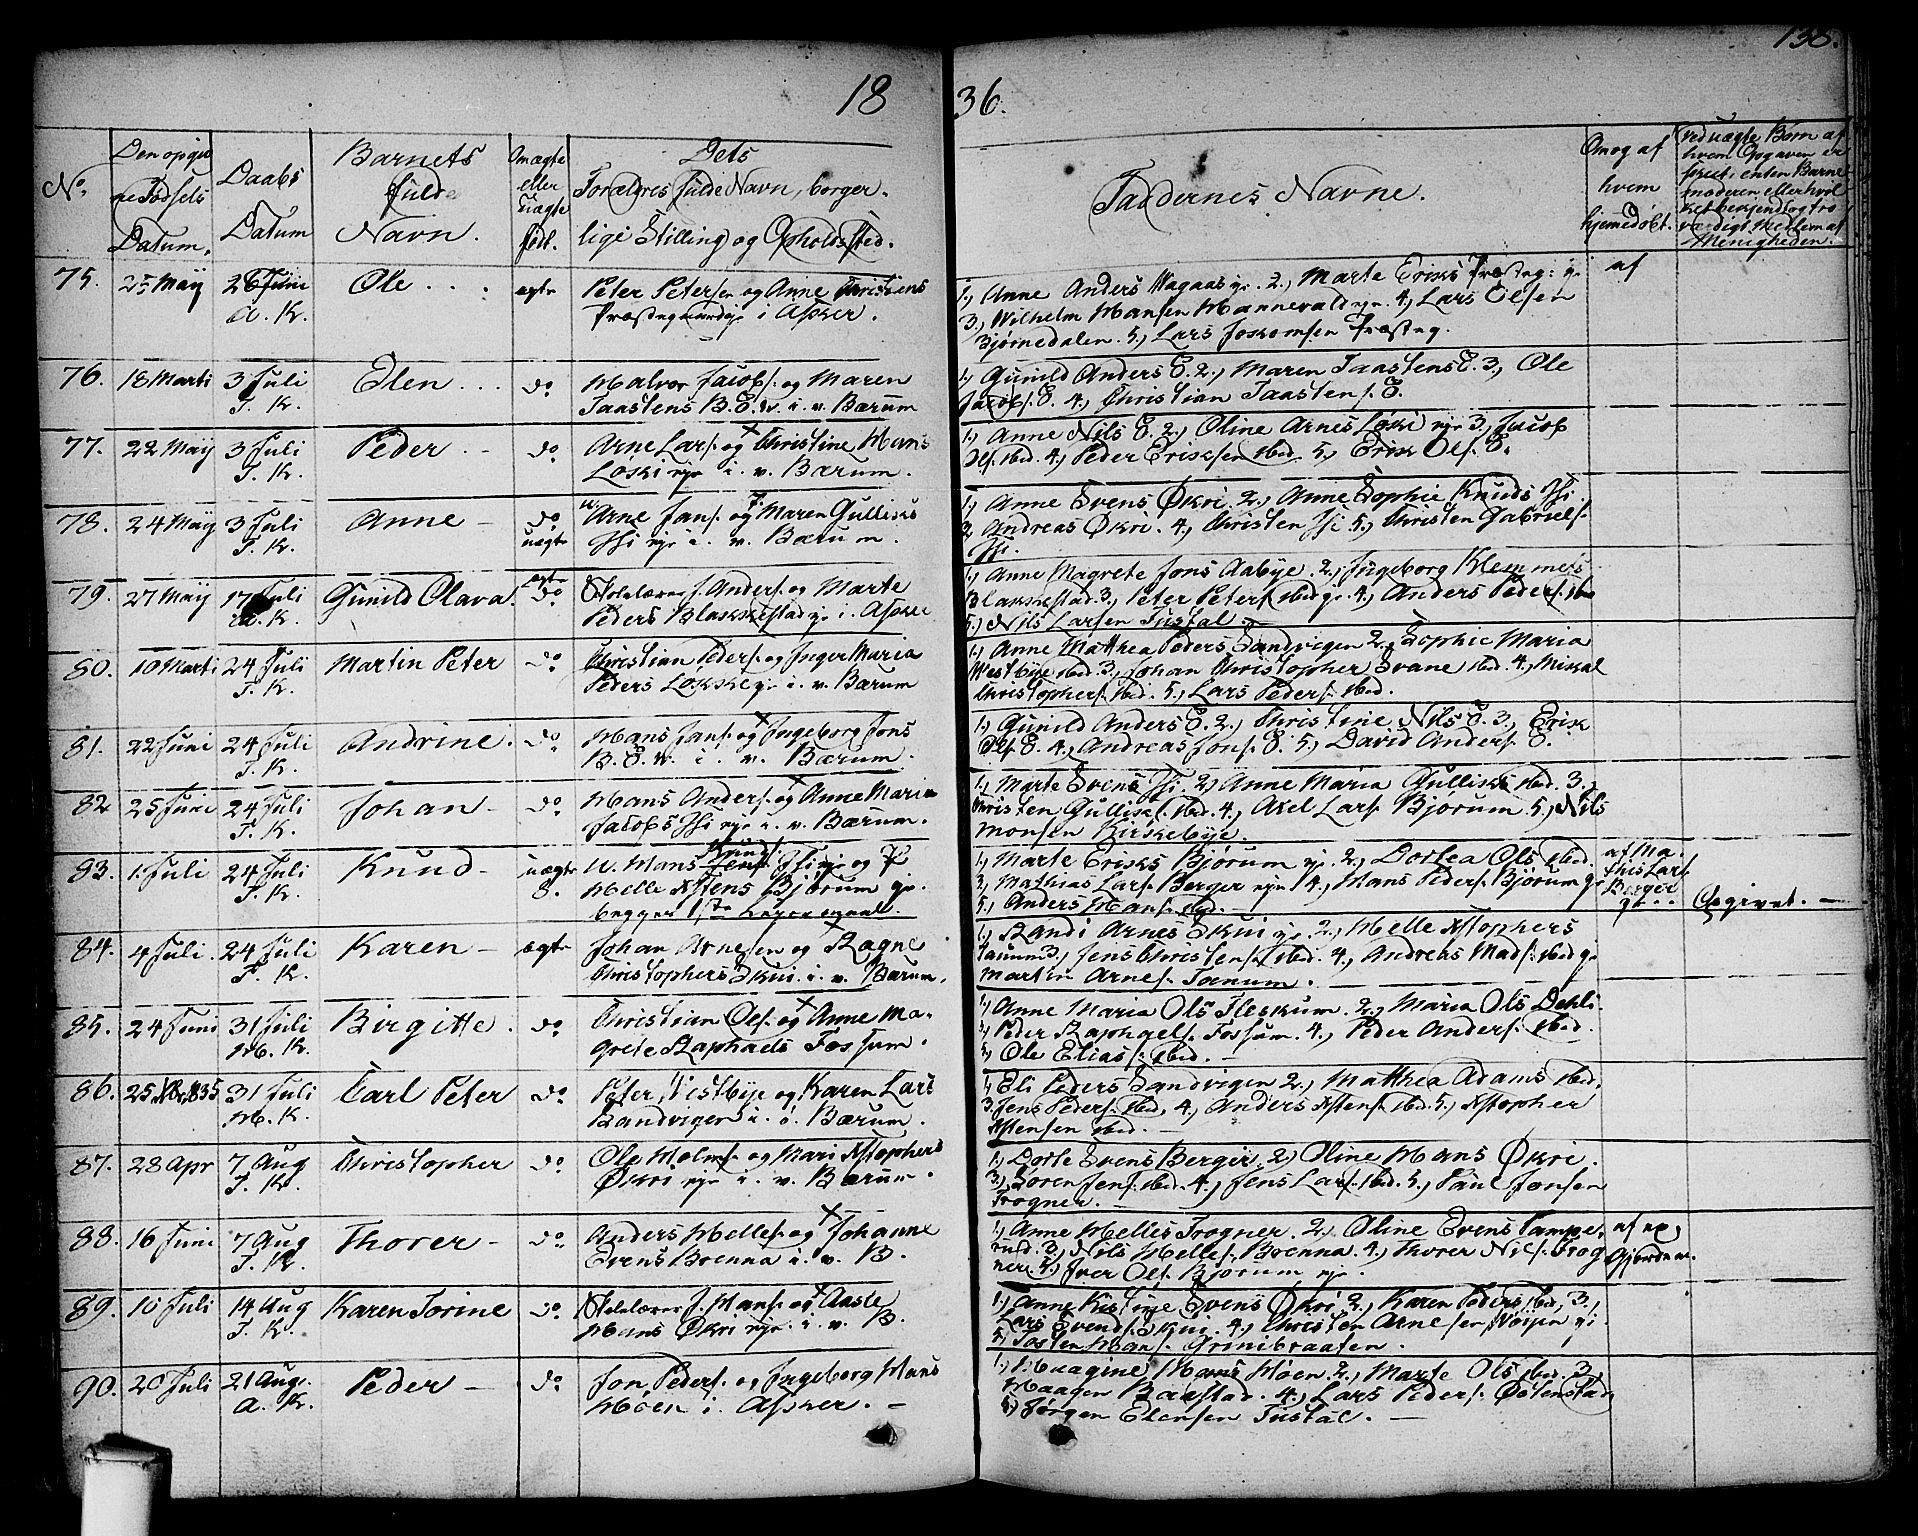 18
36.
138.
No.
Den opgivne Fødsels Datum.
Daabs Datum
Barnets fulde Navn.
Omægte eller uægte født.
Dets Forældres fulde Navn, borgerlige Stilling og Opholdssted.
Faddernes Navne.
Om og af hvem hjemedøbt.
Ved uægte Børn af hvem Opgaven er skeet: enten Barnemoderen eller hvilket bekjendt og troværdigt Medlem af Menigheden.
75. 25 May 26 Juni Ole . . . egte Peter Petersen og Anne
A. K. Præstegaardeje i Asker.
1., Anne Anders Hagaas je 2., Marte Eriks Præsteg: je
3., Wilhelm Hansen Hannevald eje. 4., Lars Olsen
Bjørnedalen. 5., Lars Joskomsen Præsteg.
af
76. 18 Marti 3 Juli Elen . . . do Halvor Jacobs. og Maren
T. K. Taastens B. E. V. i. v. Bærum
1., Gunild Anders E. 2., Maren Taastens E. 3., Ole
Jacobs. E. 4., Christian Taastens. E.
77. 22 May 3 Juli Peder . - do Arne Lars. og Christine Hans
T. K. Løkki eje i. v. Bærum.
1., Anne Nils E. 2., Oline Arnes Løkki eje 3., Jacob
Ols. ibid. 4., Peder Eriksen ibid. 5., Erik Ols. E.
78. 24 May 3 Juli Anne - do uegte Arne Jans. og Maren Gulliks
T. K. Thi eje i. v. Bærum.
1., Anne Svens Økri. 2., Anne Sophie Knuds Thi
3., Andreas Økri. 4., Christen Thi 5., Christen Gabriels.
Thi.
79. 27 May 17 Juli Gunild Olava. egte do Skolelærer J. Anders. og Marte
A. K. Peders Blakkestad je i. Asker
1., Anne Magrete Jons Aabye. 2., Ingeborg Klemmes
Blakkestad. 3., Peter Peters. ibid je 4., Anders Peders. ibid
5., Nils Larsen Tustal. -
80. 10 Marti 24 Juli Martin Peter do Christian Peders. og Inger Maria
T. K. Peders Løkke je i. v. Bærum
1., Anne Matthea Peders Sandvigen 2., Sophie Maria
Westbye ibid. 3., Johan Christopher Svane ibid. 4., Mikal
Christophers. ibid. 5., Lars Peders. ibid.
81. 22 Juni 24 Juli Andrine. do Hans Jans. og Ingeborg Jons
T. K. B. E. V. i. v. Bærum.
1., Gunild Anders E. 2., Christine Nils E. 3., Erik
Ols. E. 4., Andreas Jons. E. 5., David Anders. E.
82 25 Juni 24 Juli Johan - do Hans Anders. og Anne Maria
T. K. Jacobs Thi eje i. v. Bærum.
1., Marte Svens Thi. 2., Anne Maria Gulliks ibid. 3.,
Christen Gulliks. ibid. 4., Axel Lars. Bjørum. 5., Nils
Monsen Kirkebye.
83. 1. Juli 24 Juli Knud - uægte U. Hans Knuds. Thi je og P.
T. K. 8. Helle Xstens Bjørum je.
begges 1ste Leiermaal.
1., Marte Eriks Bjørum je. 2., Dortea Ols ibid.
3., Mathias Lars. Berger eje 4., Hans Peders. Bjørum je
5., Anders Hans. ibid. -
af Mathis Lars. Berger je . . .
Opgivet. -
84. 4 Juli. 24 Juli Karen - egte Johan Arnesen og Ragne
T. K. Christophers Skui i. v. Bærum.
1., Randi Arnes Skui je. 2., Helle Xstophers
Tanum 3., Jens Christens. ibid. 4., Andreas Mads. ibid je
Martin Arnes. Tanum.
85. 24 Juni 31 Juli Birgitte. do Christian Ols. og Anne Ma-
H. K. grete Raphaels Fossum.
1., Anne Maria Ols Fleskum. 2., Maria Ols Dehli
3., Peder Raphaels. Fossum. 4., Peder Anders. ibid.
5., Ole Elias. ibid. -
86. 25 1835 31 Juli Carl Peter do Peter Westbye og Karen Lars
H. K. Sandvigen i. ø. Bærum.
1., Eli Peders Sandvigen 2., Matthea Adams ibid.
3., Jens Peders. ibid, 4., Anders Xstens. ibid. 5., Xstopher
Xstensen ibid. -
87. 28 Apr 7 Aug Christopher do Ole Holms. og Mari Xstophers
T. K. Økri eje i. v. Bærum.
1., Dorte Svens Berger. 2., Oline Hans Økri.
3., Søren Jens. ibid. 4., Jens Lars. ibid. 5., Paul Jonsen
Frogner. -
88. 16 Juni 7 Aug Thorer - do Anders Helles. og Johanne
T. K. Evens Brenna i. v. B.
1., Anne Helles Frogner. 2., Oline Evens Pampe-
rud. 3., Nils Helles. Brenna. 4., Thorer Nils. Frog
ner. 5., Iver Ols. Bjørum eje.
af
Gjordem.
89. 10 Juli 14 Aug Karen Torine do Skolelærer J. Hans. og Aaste
T. K. Hans Økri eje. i. v. B.
1., Anne Kistine Svens Økri 2., Karen Peders ibid, 3.,
Lars Svends. Skui. 4., Christen Arnesen
5., Tosten Hans. Grinibraaten.
90. 20 Juli 21 Aug. Peder - do Jon Peders. og Ingeborg Hans
A. K. Høen i. Asker. -
1., Hans Høen 2., Marte Ols ibid. 3.,
Haagen Baastad. 4., Lars Peders.
5., Jørgen Elensen Tustal. -